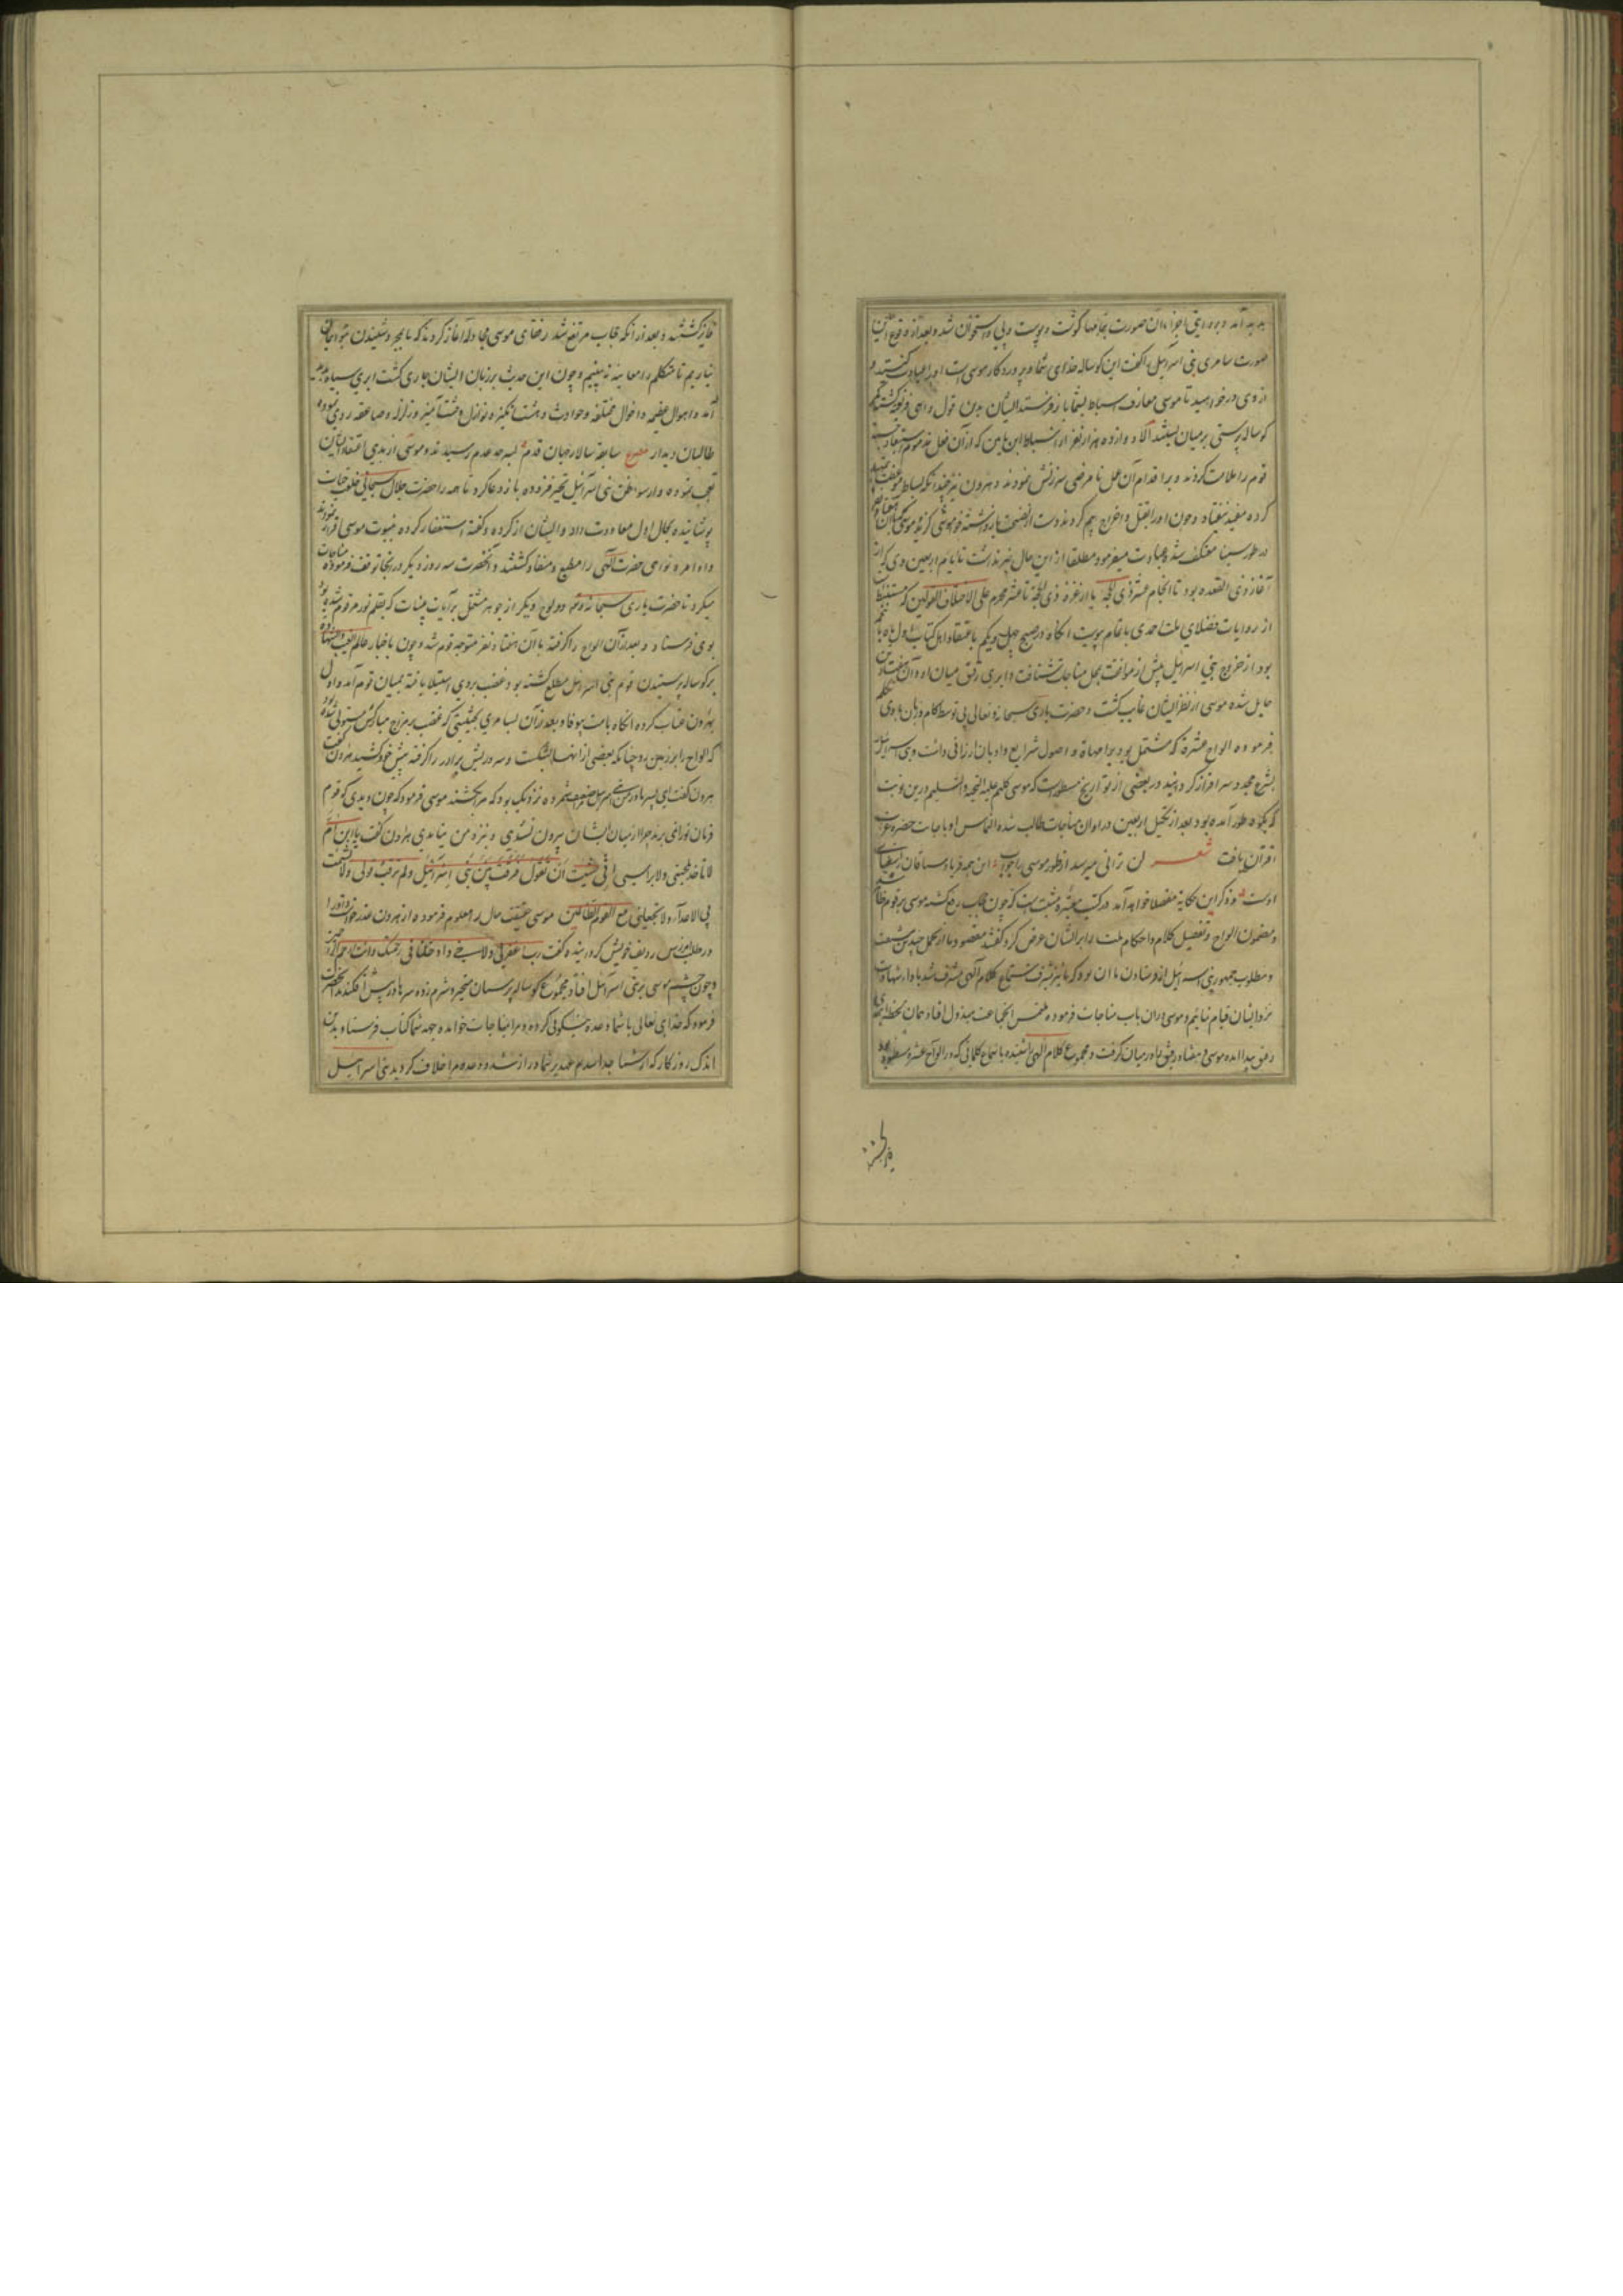 پدید آمد و بعد از آن صورت بتمامها گوشت و پوست و پی و استخوان شد و بعد از وقوع این
صورت سامری بنی اسرائیل را گفت این کوساله خدای شما و پروردکار موسی است او را عبادت کنید و
از وی در خواهید تا موسی اسباط بشما باز فرستد ایشان بدین قول واهی فریفته کشته
کوساله پرستی بر میان بستند الا دوازده هزار نفر از اسباط که از آن فعل
قوم را ملامت کردند و بر اقدام آن عمل نا مرضی سرزنش نمودند و هرون نیز چندانکه بساط موعظت
کرده مفید نیفتاد و چون او را بقتل و اخراج بیم کردند دست از نصیحت باز داشته خموشی کزید
در طور سینا معتکف شد و عبادت میفرمود مطلقا از این حال خبر نداشت تا ایام اربعین وی که از
آغاز ذی القعده بود تا انجام عشر ذی الحجه یا از غره ذی الحجه تا عشر محرم علی الاختلاف القولین که مستنبط
از روایات فضلای ملت احمدی باتمام پیوست انکاه در صبح چهل و یکم باعتقاد اهل کتاب
بود از خروج بنی اسرائیل پیش از موافقت بمحل مناجات شتافت و ابری رقیق میان او و آن هفتاد تن
حایل شده موسی از نظر ایشان غایب کشت و حضرت باری سبحانه و تعالی بی توسط کام و زبان با وی تکلم
فرموده الواح عشره که مشتمل بود بر اصول شرایع و ادیان ارزانی داشت
بشرع مجدد سرافراز کردانید در بعضی از تواریخ مسطور است که موسی کلیم علیه التحیه و التسلیم درین نوبت
که بکوه طور آمده بود بعد از تکمیل اربعین در اوان مناجات طالب شده التماس او باجابت حضرت عزت
اقتران یافت شعر لن ترانی میرسد از طور موسی را جواب این همه فریاد مشتاقان ز استغنای
اوست و ذکر این حکایت مفصلا خواهد آمد در کتب معتبره مثبت است که چون حجاب رفع کشته موسی بر قوم ظاهر
و مضمون الواح و تفصیل کلام و احکام ملت را بر ایشان عرض کرد کفتند مقصود ما از تحمل چندین مشقت
و مطلوب جمهور بنی اسرائیل از فرستادن ما آن بود که ما نیز بشرف استماع کلام آلهی مشرف شده باداء شهادت
نزد ایشان قیام نمائیم و موسی در آن باب مناجات فرموده ملتمس آن جماعت مبذول افتاد همان لحظه ابری
رقیق پیدا آمده موسی و هفتاد رفیق را در میان گرفت و مجموع کلام آلهی را شنیده باستماع کلماتی که در الواح عشره مسطور بود
فایز کشتند
فایز کشتند و بعد از آنکه حجاب مرتفع شد رفقای موسی مجادله آغاز کردند که ما بمجرد شنیدن
نیاریم تا متکلم را معاینه نه بینیم و چون این حدیث بر زبان ایشان جاری کشت ابری سیاه پدید
آمد و اهوال عظیمه و احوال مختلفه و حوادث دهشت انگیز و نوازل وحشت آمیز و زلزله و صاعقه روی نموده
طالبان دیدار سابقه سالار جهان قدم بسرحد عدم رسیدند و موسی از بدی اعتقاد ایشان
تعجب نموده و از سوء ظن بنی اسرائیل تحیر فزوده باز دعا کرد تا همه را حضرت جلال سبحانی خلعت حیات
پوشانیده بحال اول معاودت داد و ایشان از کرده و گفته استغفار کرده بنبوت موسی اقرار نمودند
و اوامر و نواهی حضرت آلهی را مطیع و منقاد کشتند و آنحضرت سه روز دیکر در آنجا توقف فرموده مناجات
میکرد تا حضرت باری سبحانه و تعالی دو لوح دیکر از جوهر مشتمل بر آیات بینات که بقلم نور مرقوم شده بود
بوی فرستاد و بعد از آن الواح را گرفته با آن هفتاد نفر متوجه قوم شد و چون باخبار عالم الغیب و الشهاده
بر کوساله پرستیدن قوم بنی اسرائیل مطلع کشته بود غضب بر وی استیلا یافته بمیان قوم آمد و اول
بهرون عتاب کرده انکاه بامت بیوفا و بعد از آن بسامری بحیثیتی که غضب بر مزاج مبارکش مستولی شده بود
که الواح را بر زمین زد چنانکه بعضی از آنها بشکست و سر و ریش برادر را کرفته پیش خود کشید هرون گفت
هرون گفت ای پسر مادر من بنی اسرائیل مرا ضعیف شمرده نزدیک بود که مرا بکشند موسی فرمود که چون دیدی که قوم
فرمان تو را نمی برند چرا از میان ایشان بیرون نشدی و نزد من نیامدی هرون گفت یا ابن ام
لا تاخذ بلحیتی ولا براسی انی خشیت ان تقول فرقت بین بنی اسرائیل ولم ترقب قولی ولا تشمت
بی الاعداء ولا تجعلنی مع القوم الظالمین موسی حقیقت حال را معلوم فرموده از هرون عذر خواست و او را
در طلب آمرزش ردیف خویش کردانیده گفت رب اغفرلی ولاخی وادخلنا فی رحمتک وانت ارحم الراحمین
و چون چشم موسی بر بنی اسرائیل افتاد مجموع کوساله پرستان متحیر و شرم زده سرها در پیش افکندند آنحضرت
فرمود که خدای تعالی با شما وعده نیکوئی کرده و مرا بمناجات خوانده جهه شما کتاب فرستاد بدین
اندک روزکار که از شما جدا شدم عهد بر شما دراز شد و وعده مرا خلاف کردید بنی اسرائیل